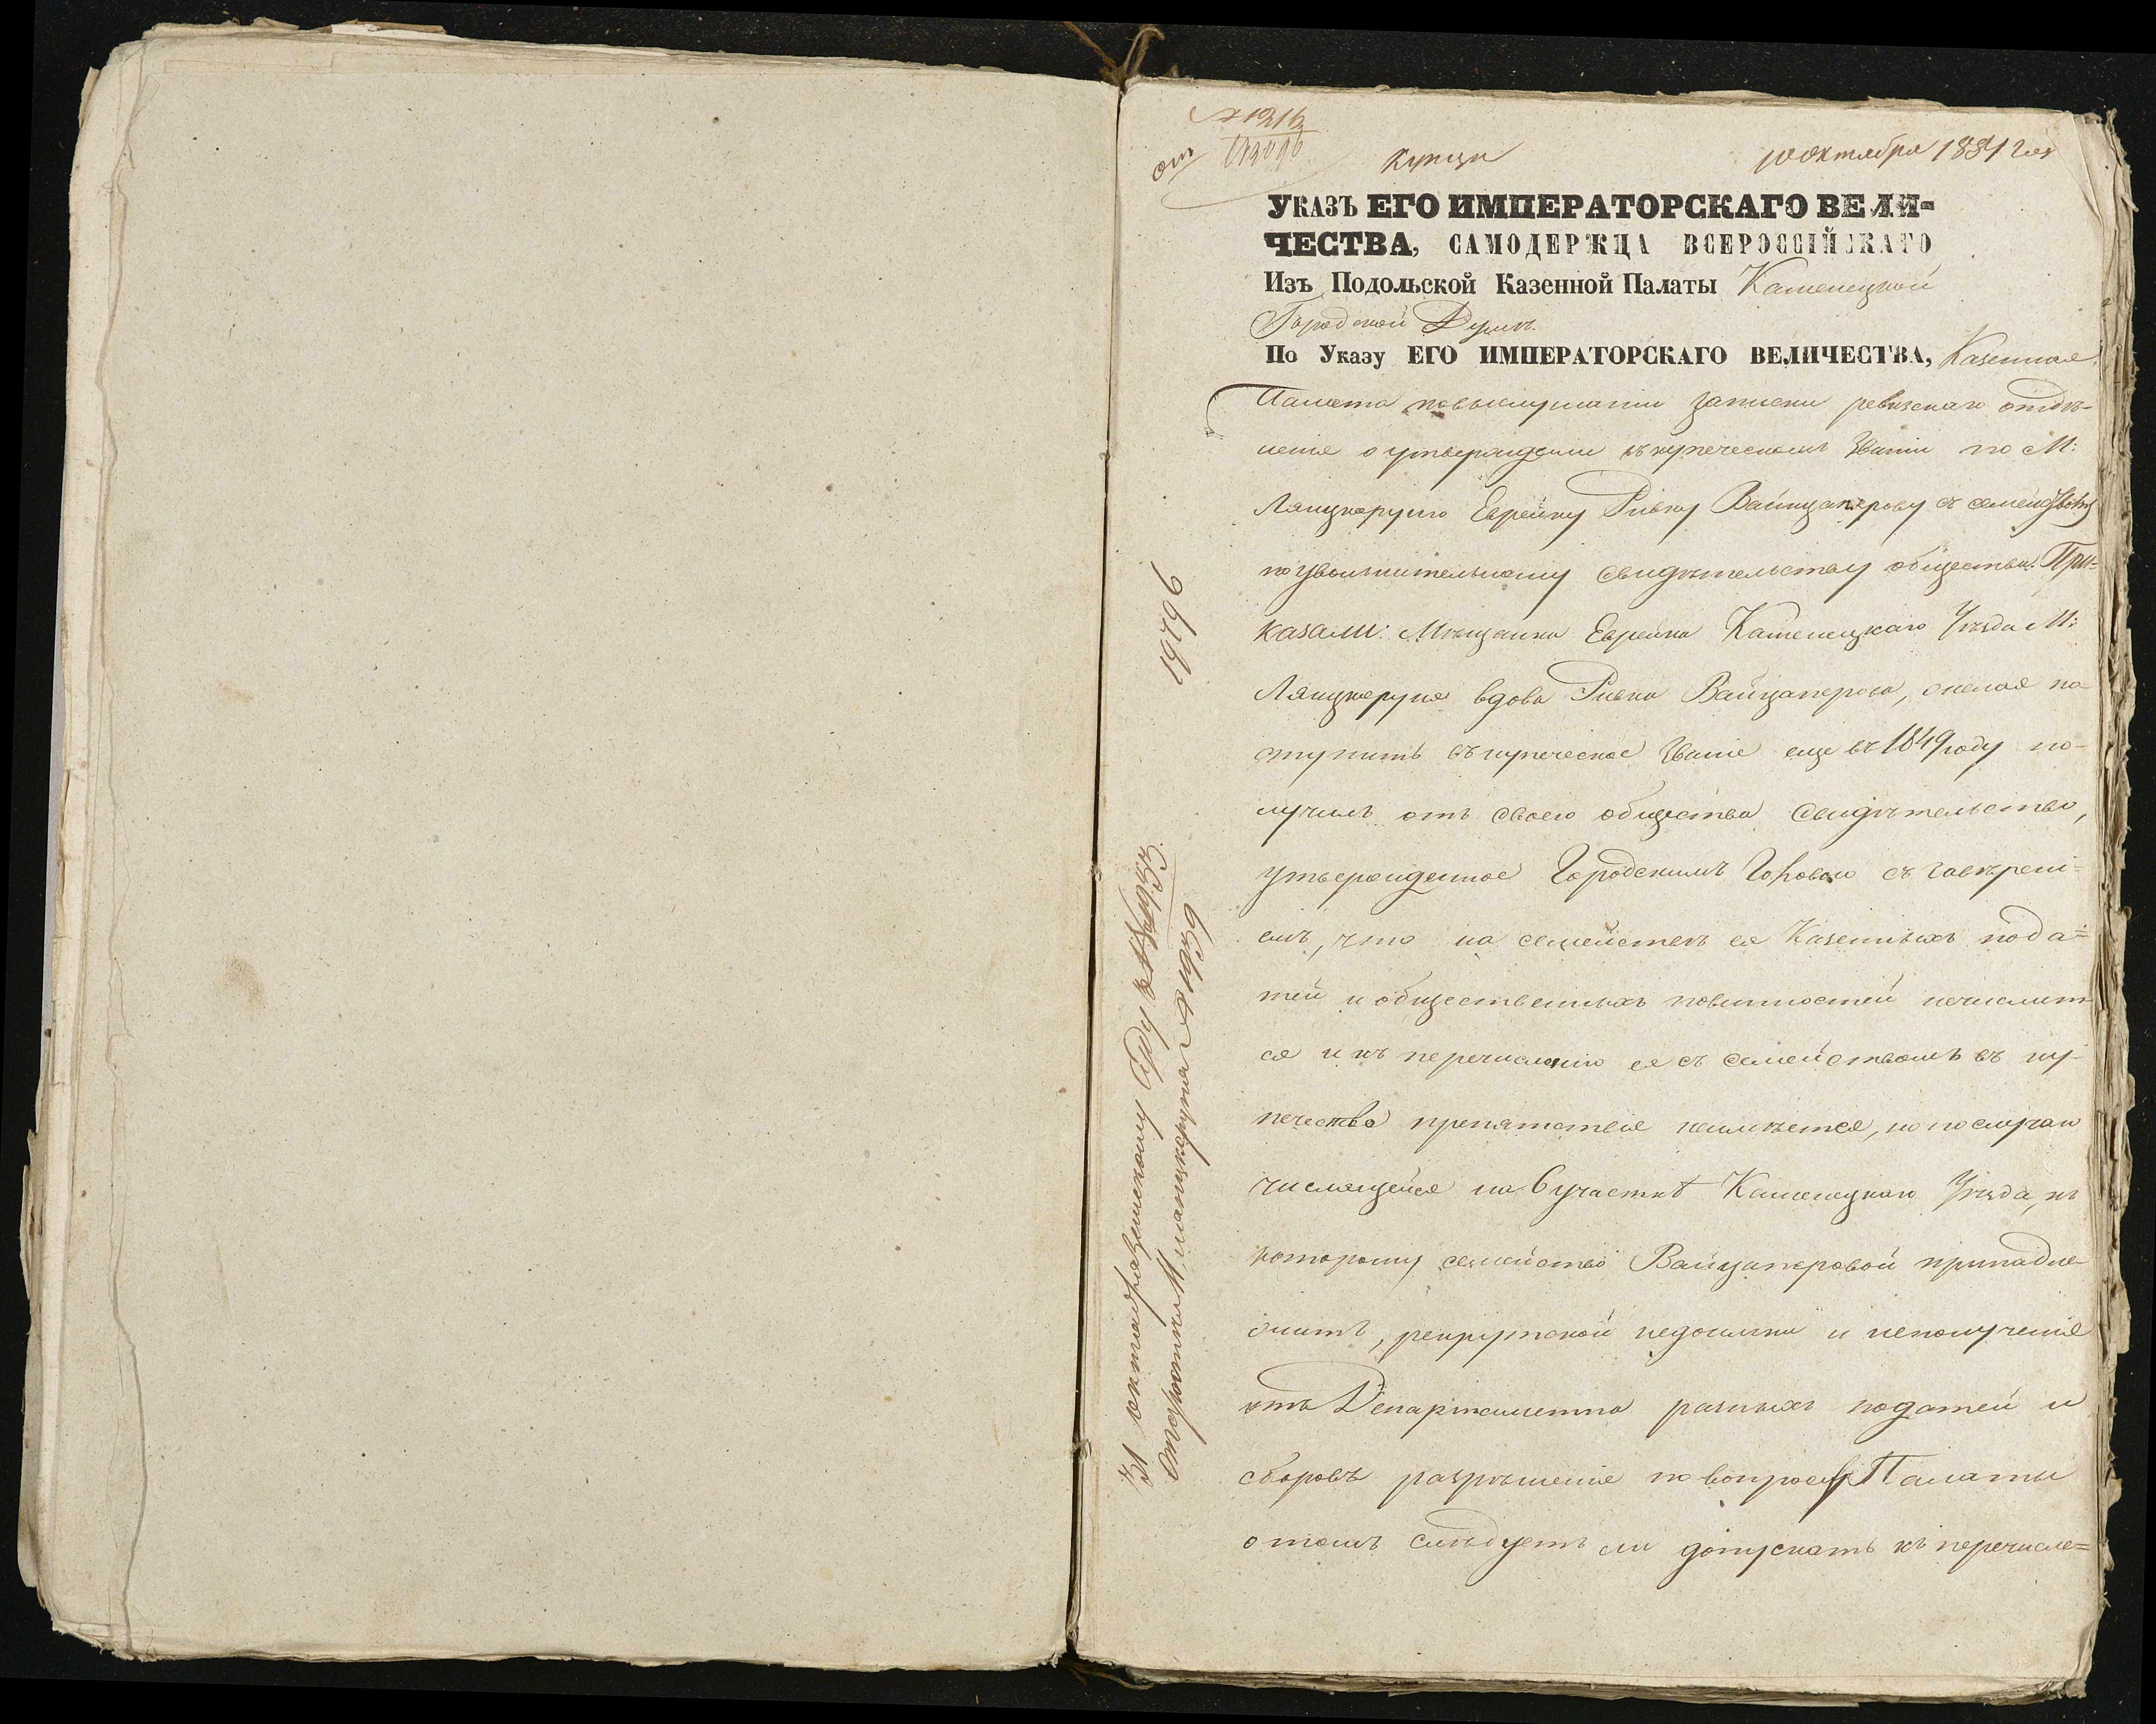 купцы
10 октября 1851 года
УКАЗЪ ЕГО ИМПЕРАТОРСКАГО ВЕЛИ-
ЧЕСТВА, САМОДЕРЖЦА ВСЕРОССІЙСКАГО
Изъ Подольской Казенной Палаты Каменецкой
Городской Думѣ.
По Указу ЕГО ИМПЕРАТОРСКАГО ВЕЛИЧЕСТВА, Казенная
Палата по выслушаніи записки ревизскаго отдѣ-
ленія о утвержденіи въ купеческомъ званіи по М:
Лянцкоруню Еврейку Ривку Вайнцаперову съ семействомъ
по увольнительному свидѣтельству общества. При-
казали: Мѣщанка Еврейка Каменецкаго Уѣзда М:
Лянцкоруня вдова Ривка Вайцаперова, желая по
ступить въ купеческое званіе еще въ 1849 году по-
лучила отъ своего общества свидѣтельство,
утвержденное Городскимъ Головою съ завѣрені-
емъ, что на семействѣ ея Казенныхъ пода=
тей и общественныхъ повинностей нечислит
ся и къ перечисленію ея съ семействомъ въ ку-
печество препятствія неимѣется, но по случаю
числящейся на 6 участкѣ Каменецкаго Уѣзда, къ
которому семейство Вайцаперовой принадле
житъ, рекрутской недоимки и неполученія
отъ Департамента разныхъ податей и
сборовъ разрѣшенія по вопросу Палаты
о томъ слѣдуетъ ли допускать къ перечисле=
19796